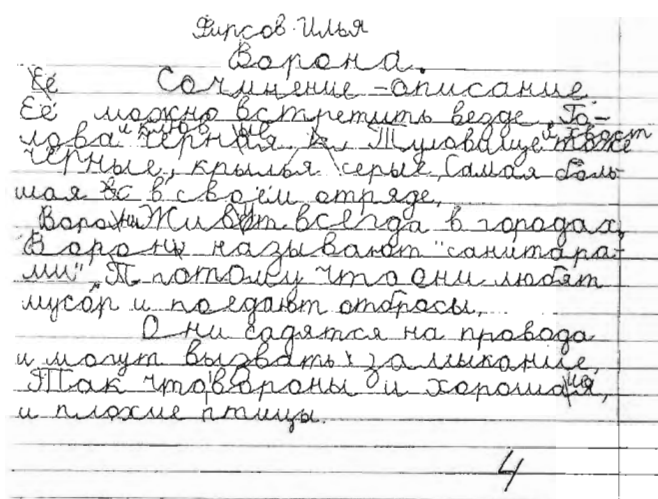 Фирсов Илья
Ворона.
Её Сочинение-описание
Её можно встретить везде. Го-
лова и клюв чёрные. Туловище и хвост тоже
чёрные, крылья серые. Самая боль-
шая в своём отряде.
Вороны Живут всегда в городах.
Вороны называют "санитара-
ми". П потому что они любят
мусор и поедают отбросы.
Они садятся на провода
и могут вызвать замыкание.
Так что вороны и хорошие,
и плохие птицы.
4